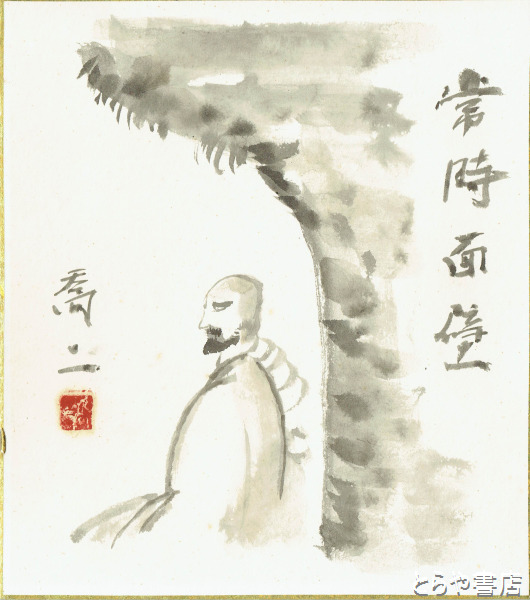 常時面壁
喬二
とらや書店